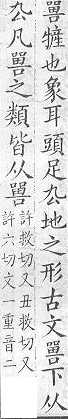 嘼㹌也象耳頭足厹地之形古文嘼下从
厹凡嘼之類皆从嘼
許救切又丑救切又
許六切文一重音二